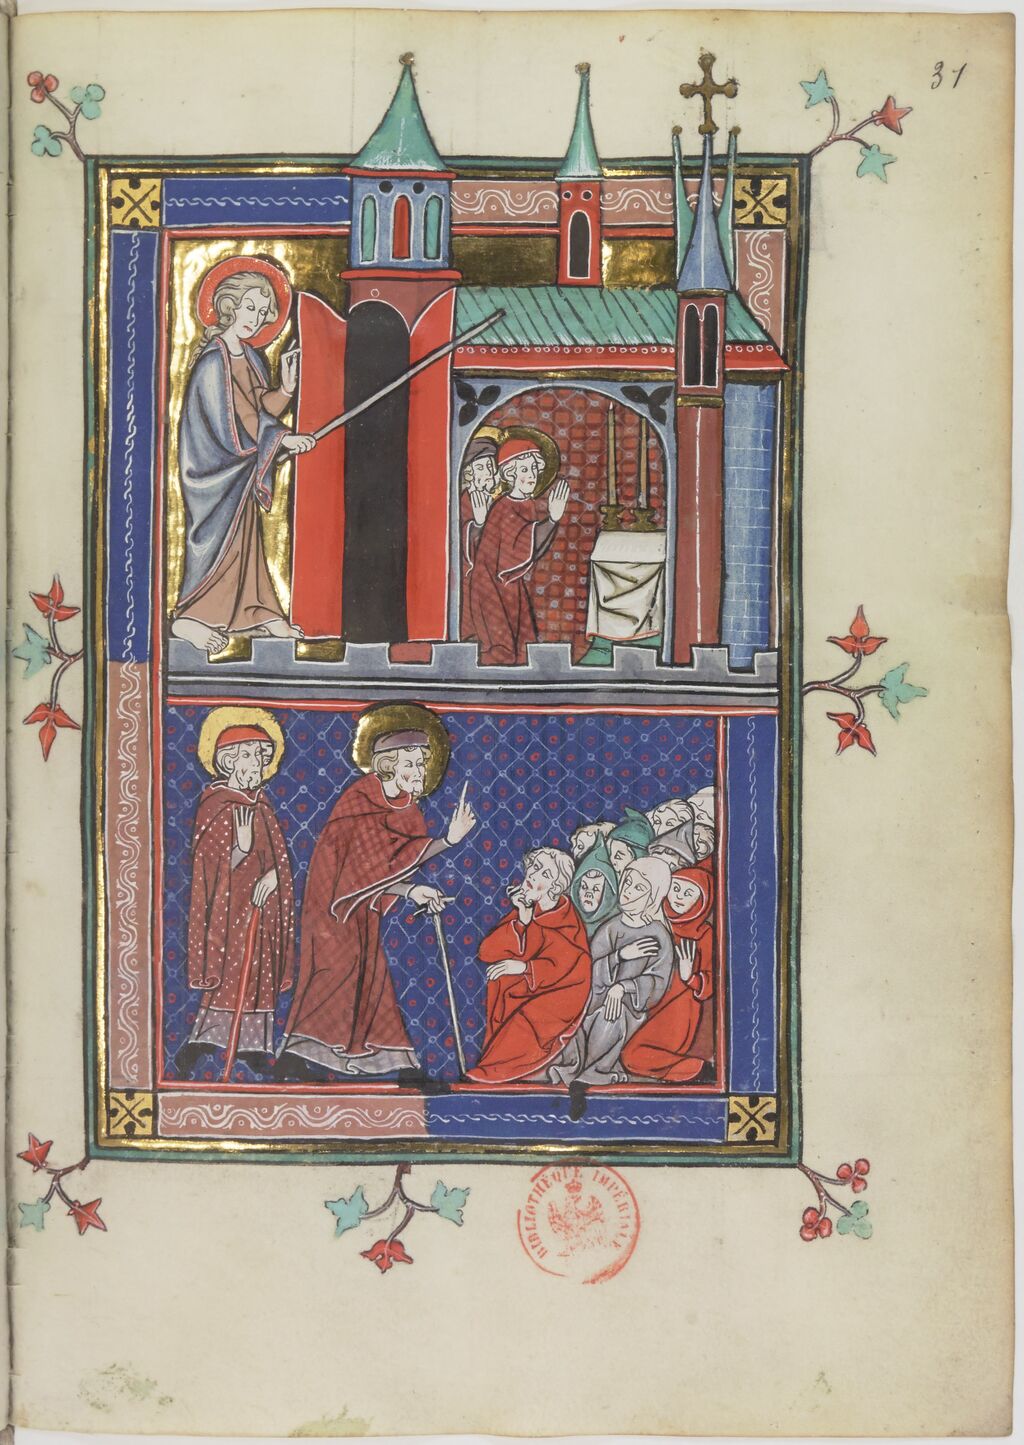 31
BIBLIOTHÈQUE IMPÉRIALE